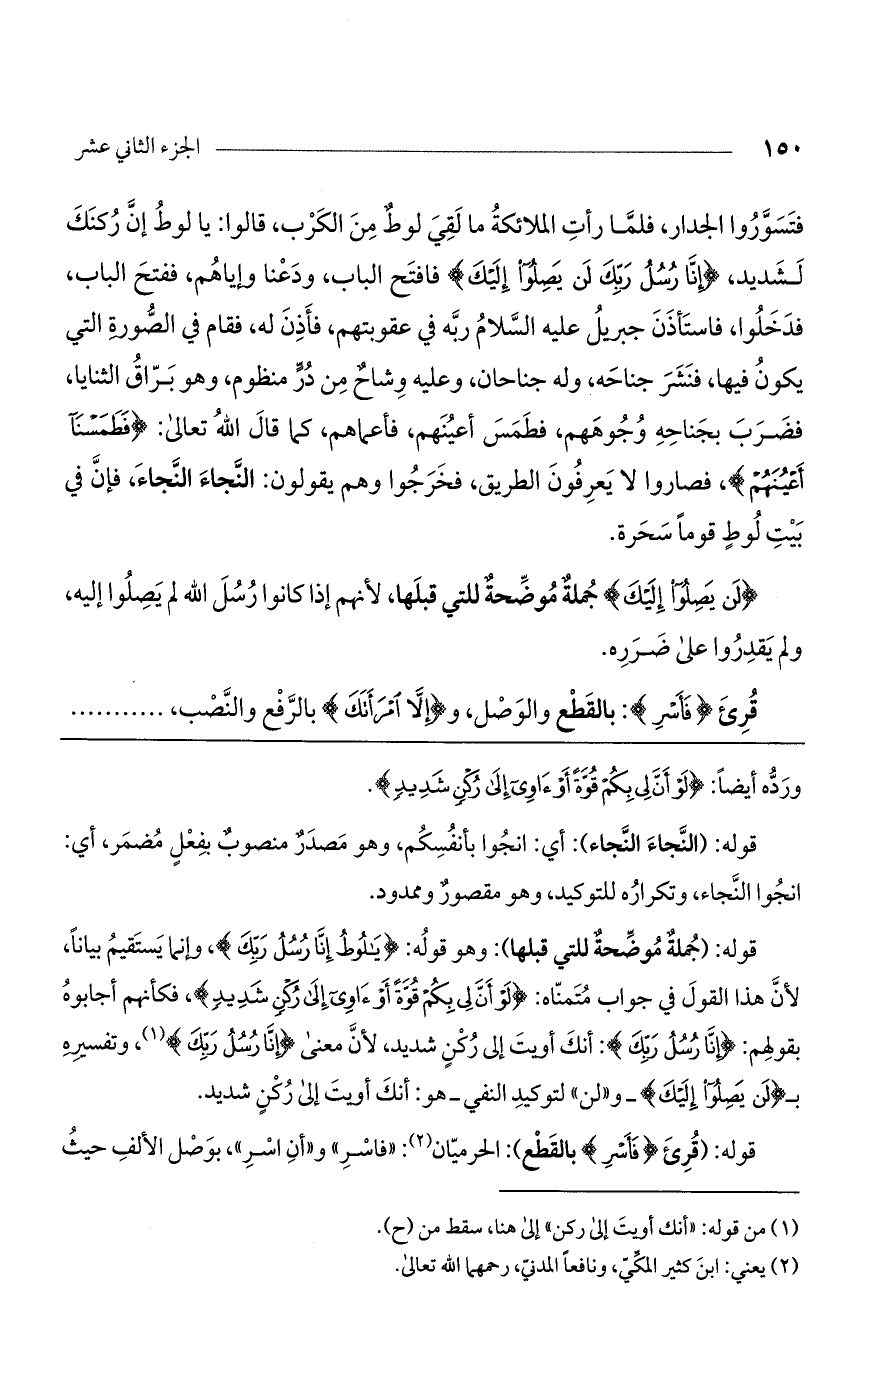 ١٥٠ ــــــــــــــــــــ الجزء الثاني عشر
فتَسَوَّرُوا الجدار، فلمَّا رأتِ الملائكةُ ما لَقِيَ لوطٌ مِنَ الكَرْب، قالوا: يا لوطُ إنَّ رُكنَكَ
لَـشَديد، ﴿إِنَّا رُسُلُ رَبِّكَ لَن يَصِلُوٓاْ إِلَيْكَ﴾ فافتَح الباب، ودَعْنا وإياهُم، ففتحَ الباب،
فدَخَلُوا، فاستَأذَنَ جبريلُ عليه السَّلامُ ربَّه في عقوبتهم، فأَذِنَ له، فقام في الصُّورةِ التي
يكونُ فيها، فنَشَرَ جناحَه، وله جناحان، وعليه وِشاحٌ مِن دُرٍّ منظوم، وهو بَـرّاقُ الثنايا،
فضَـرَبَ بجَناحِهِ وُجُوهَهم، فطَمَسَ أعيُنَهم، فأعماهم، كما قالَ اللهُ تعالىٰ: ﴿فَطَمَسْنَآ
أَعْيُنَهُمْ﴾، فصاروا لا يَعرِفُونَ الطريق، فخَرَجُوا وهم يقولون: النَّجاءَ النَّجاءَ، فإنَّ في
بَيْتِ لُوطٍ قوماً سَحَرة.
﴿لَن يَصِلُوٓاْ إِلَيْكَ﴾ جُملةٌ مُوضِّحةٌ للتي قبلَها، لأنهم إذا كانوا رُسُلَ الله لم يَصِلُوا إليه،
ولم يَقدِرُوا علىٰ ضَـرَرِه.
قُرِئَ ﴿فَأَسْرِ﴾: بالقَطْع والوَصْل، و﴿إِلَّا ٱمْرَأَتَكَ﴾ بالرَّفْع والنَّصْب، ...........
ورَدُّه أيضاً: ﴿لَوْ أَنَّ لِى بِكُمْ قُوَّةً أَوْ ءَاوِىٓ إِلَىٰ رُكْنٍ شَدِيدٍ﴾.
قوله: (النَّجاءَ النَّجاء): أي: انجُوا بأنفُسِكُم، وهو مَصدَرٌ منصوبٌ بفِعْلٍ مُضمَر، أي:
انجُوا النَّجاء، وتكرارُه للتوكيد، وهو مقصورٌ وممدود.
قوله: (جُملةٌ مُوضِّحةٌ للتي قبلها): وهو قولُه: ﴿يَٰلُوطُ إِنَّا رُسُلُ رَبِّكَ﴾، وإنما يَستَقيمُ بياناً،
لأنَّ هذا القولَ في جواب مُتمنّاه: ﴿لَوْ أَنَّ لِى بِكُمْ قُوَّةً أَوْ ءَاوِىٓ إِلَىٰ رُكْنٍ شَدِيدٍ﴾، فكأنهم أجابوهُ
بقولهم: ﴿إِنَّا رُسُلُ رَبِّكَ﴾: أنكَ أويتَ إلى رُكْنٍ شديد، لأنَّ معنىٰ ﴿إِنَّا رُسُلُ رَبِّكَ﴾(١)، وتفسيرِهِ
بـ﴿لَن يَصِلُوٓاْ إِلَيْكَ﴾ ـ و«لن» لتوكيدِ النفي ـ هو: أنكَ أويتَ إلىٰ رُكْنٍ شديد.
قوله: (قُرِئَ ﴿فَأَسْرِ﴾ بالقَطْع): الحرميّان(٢): «فاسْرِ» و«أنِ اسْرِ»، بوَصْل الألفِ حيثُ
(١) من قوله: «أنك أويتَ إلىٰ ركن» إلىٰ هنا، سقط من (ح).
(٢) يعني: ابنَ كثير المكِّيّ، ونافعاً المدنيّ، رحمهما الله تعالىٰ.